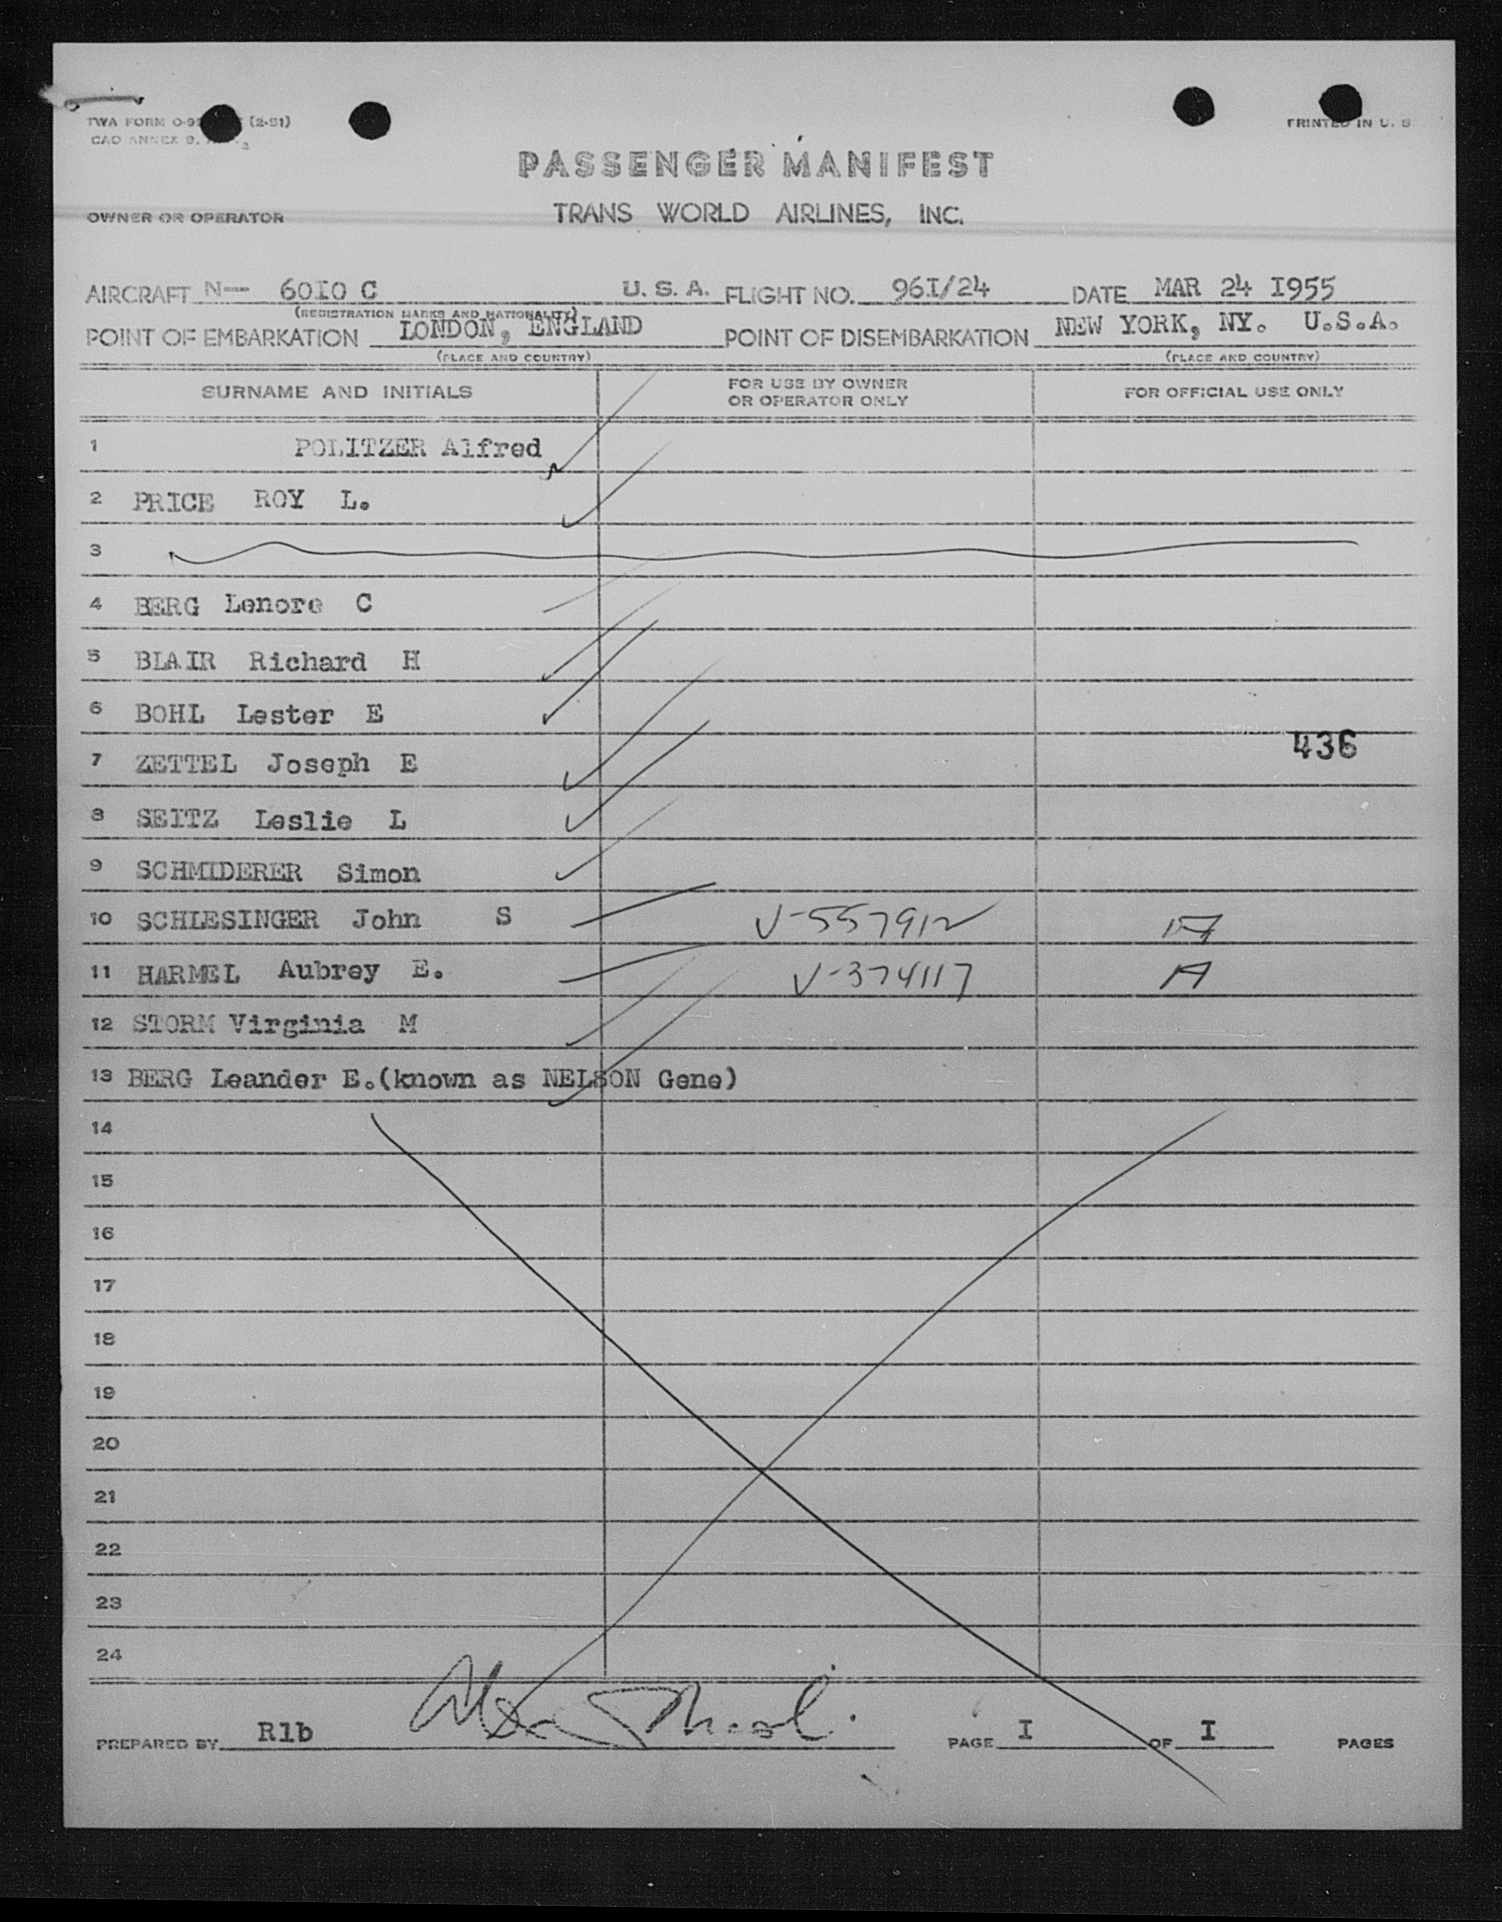 TWA FORM O-9 (2-51) PRINTED IN U. S.
CAO ANNEX 9,
PASSENGER MANIFEST
OWNER OR OPERATOR TRANS WORLD AIRLINES, INC.
AIRCRAFT N-- 6010 C U. S. A. FLIGHT NO. 96I/24 DATE MAR 24 I955
(REGISTRATION MARKS AND NATIONALITY)
POINT OF EMBARKATION LONDON, ENGLAND POINT OF DISEMBARKATION NEW YORK, NY. U.S.A.
(PLACE AND COUNTRY) (PLACE AND COUNTRY)
SURNAME AND INITIALS FOR USE BY OWNER OR OPERATOR ONLY FOR OFFICIAL USE ONLY
1 POLITZER Alfred
2 PRICE ROY L.
3
4 BERG Lenore C
5 BLAIR Richard H
6 BOHL Lester E
436
7 ZETTEL Joseph E
8 SEITZ Leslie L
9 SCHMIDERER Simon
10 SCHLESINGER John S V-557912 A
11 HARMEL Aubrey E. V-374117 A
12 STORM Virginia M
13 BERG Leander E.(known as NELSON Gene)
14
15
16
17
18
19
20
21
22
23
24
PREPARED BY R1b PAGE I OF I PAGES